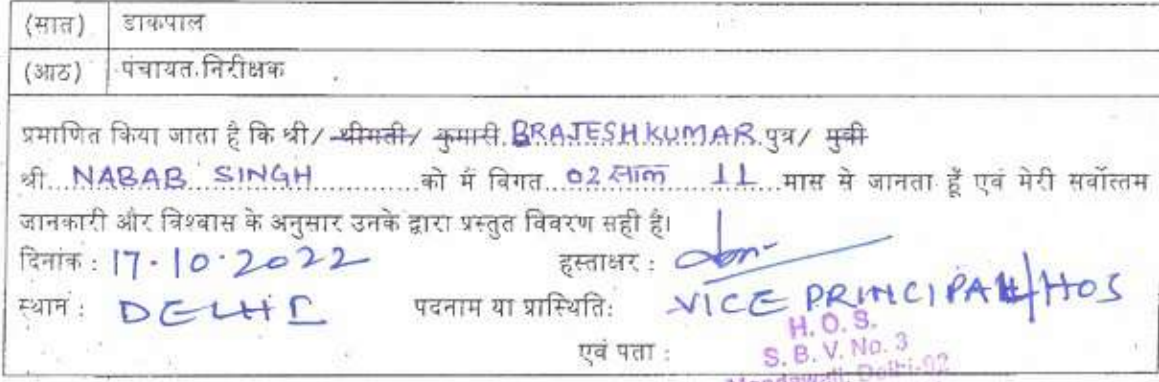 (सात) डाकपाल
(आठ) पंचायत निरीक्षक
प्रमाणित किया जाता है कि श्री/ श्रीमती/ कुमारी BRAJESH KUMAR पुत्र/ पुत्री
श्री NABAB SINGH को में विगत 02 साल 11 मास से जानता हूँ एवं मेरी सर्वोत्तम
जानकारी और विश्वास के अनुसार उनके द्वारा प्रस्तुत विवरण सही है।
दिनांक : 17.10.2022 हस्ताक्षर :
स्थान : DELHI पदनाम या प्रास्थिति: VICE PRINCIPAL/HOS
एवं पता :
H. O. S.
S. B. V. No. 3
Mandawali, Delhi-92